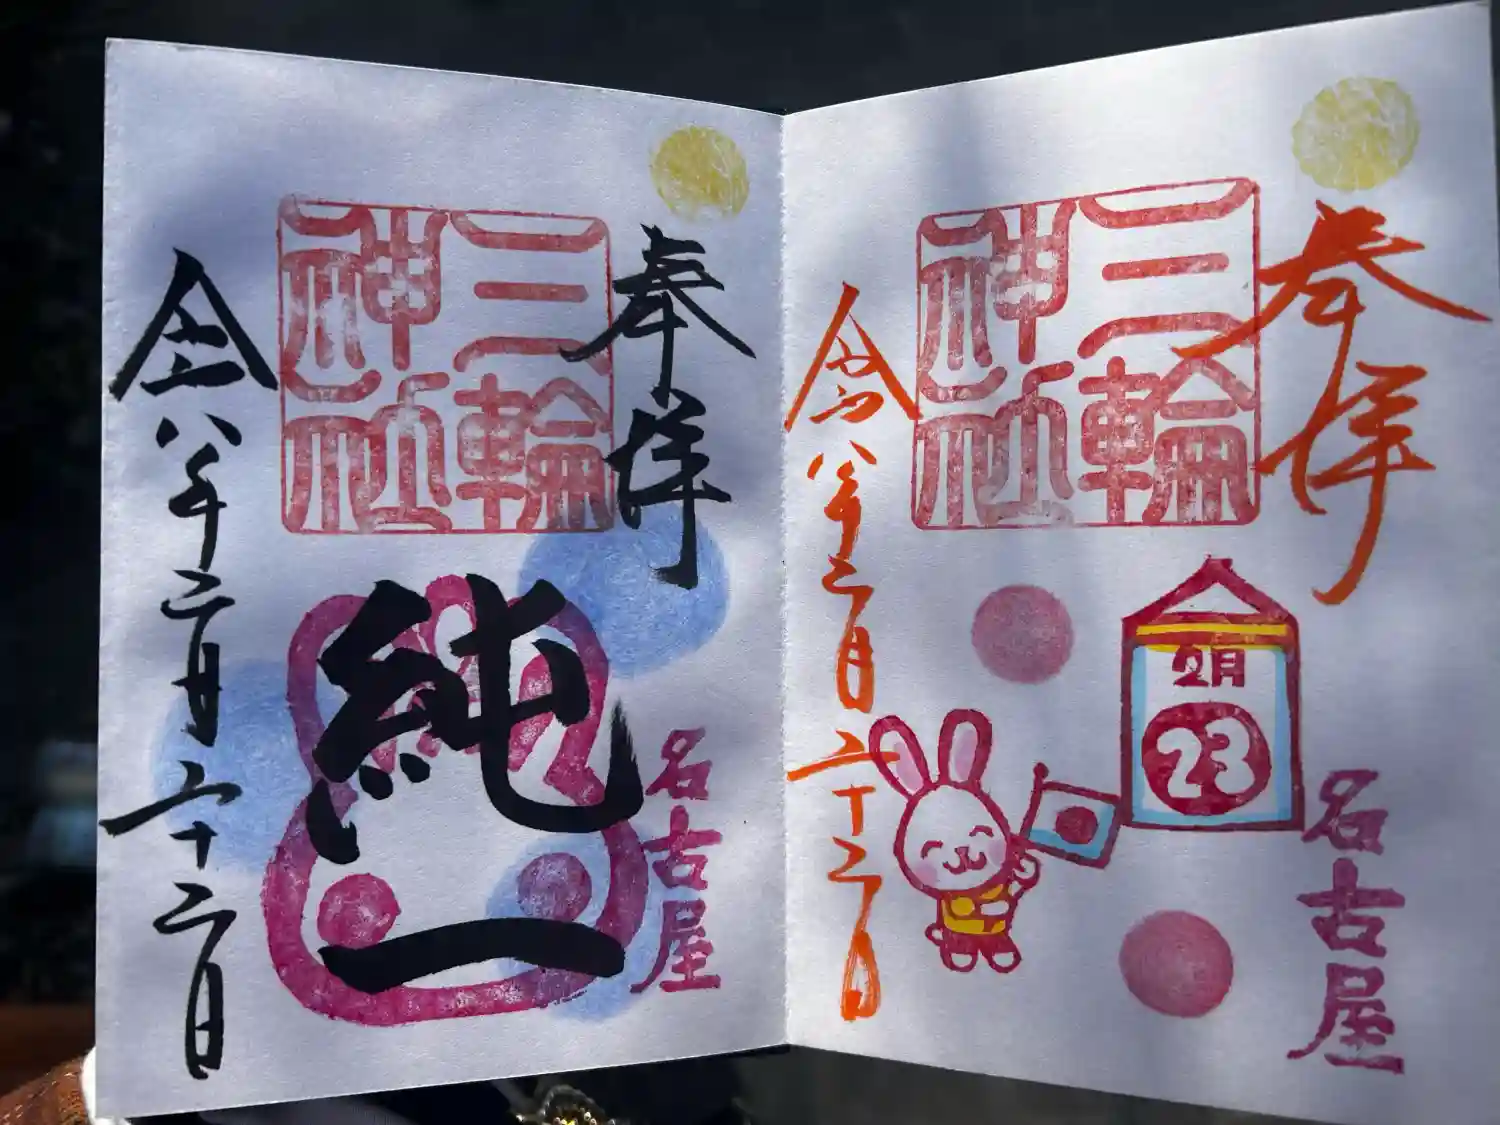 奉拝
三輪
神社
2月
23
名古屋
令八年二月二十三日
奉拝
三輪
神社
純一
名古屋
令八年二月二十三日